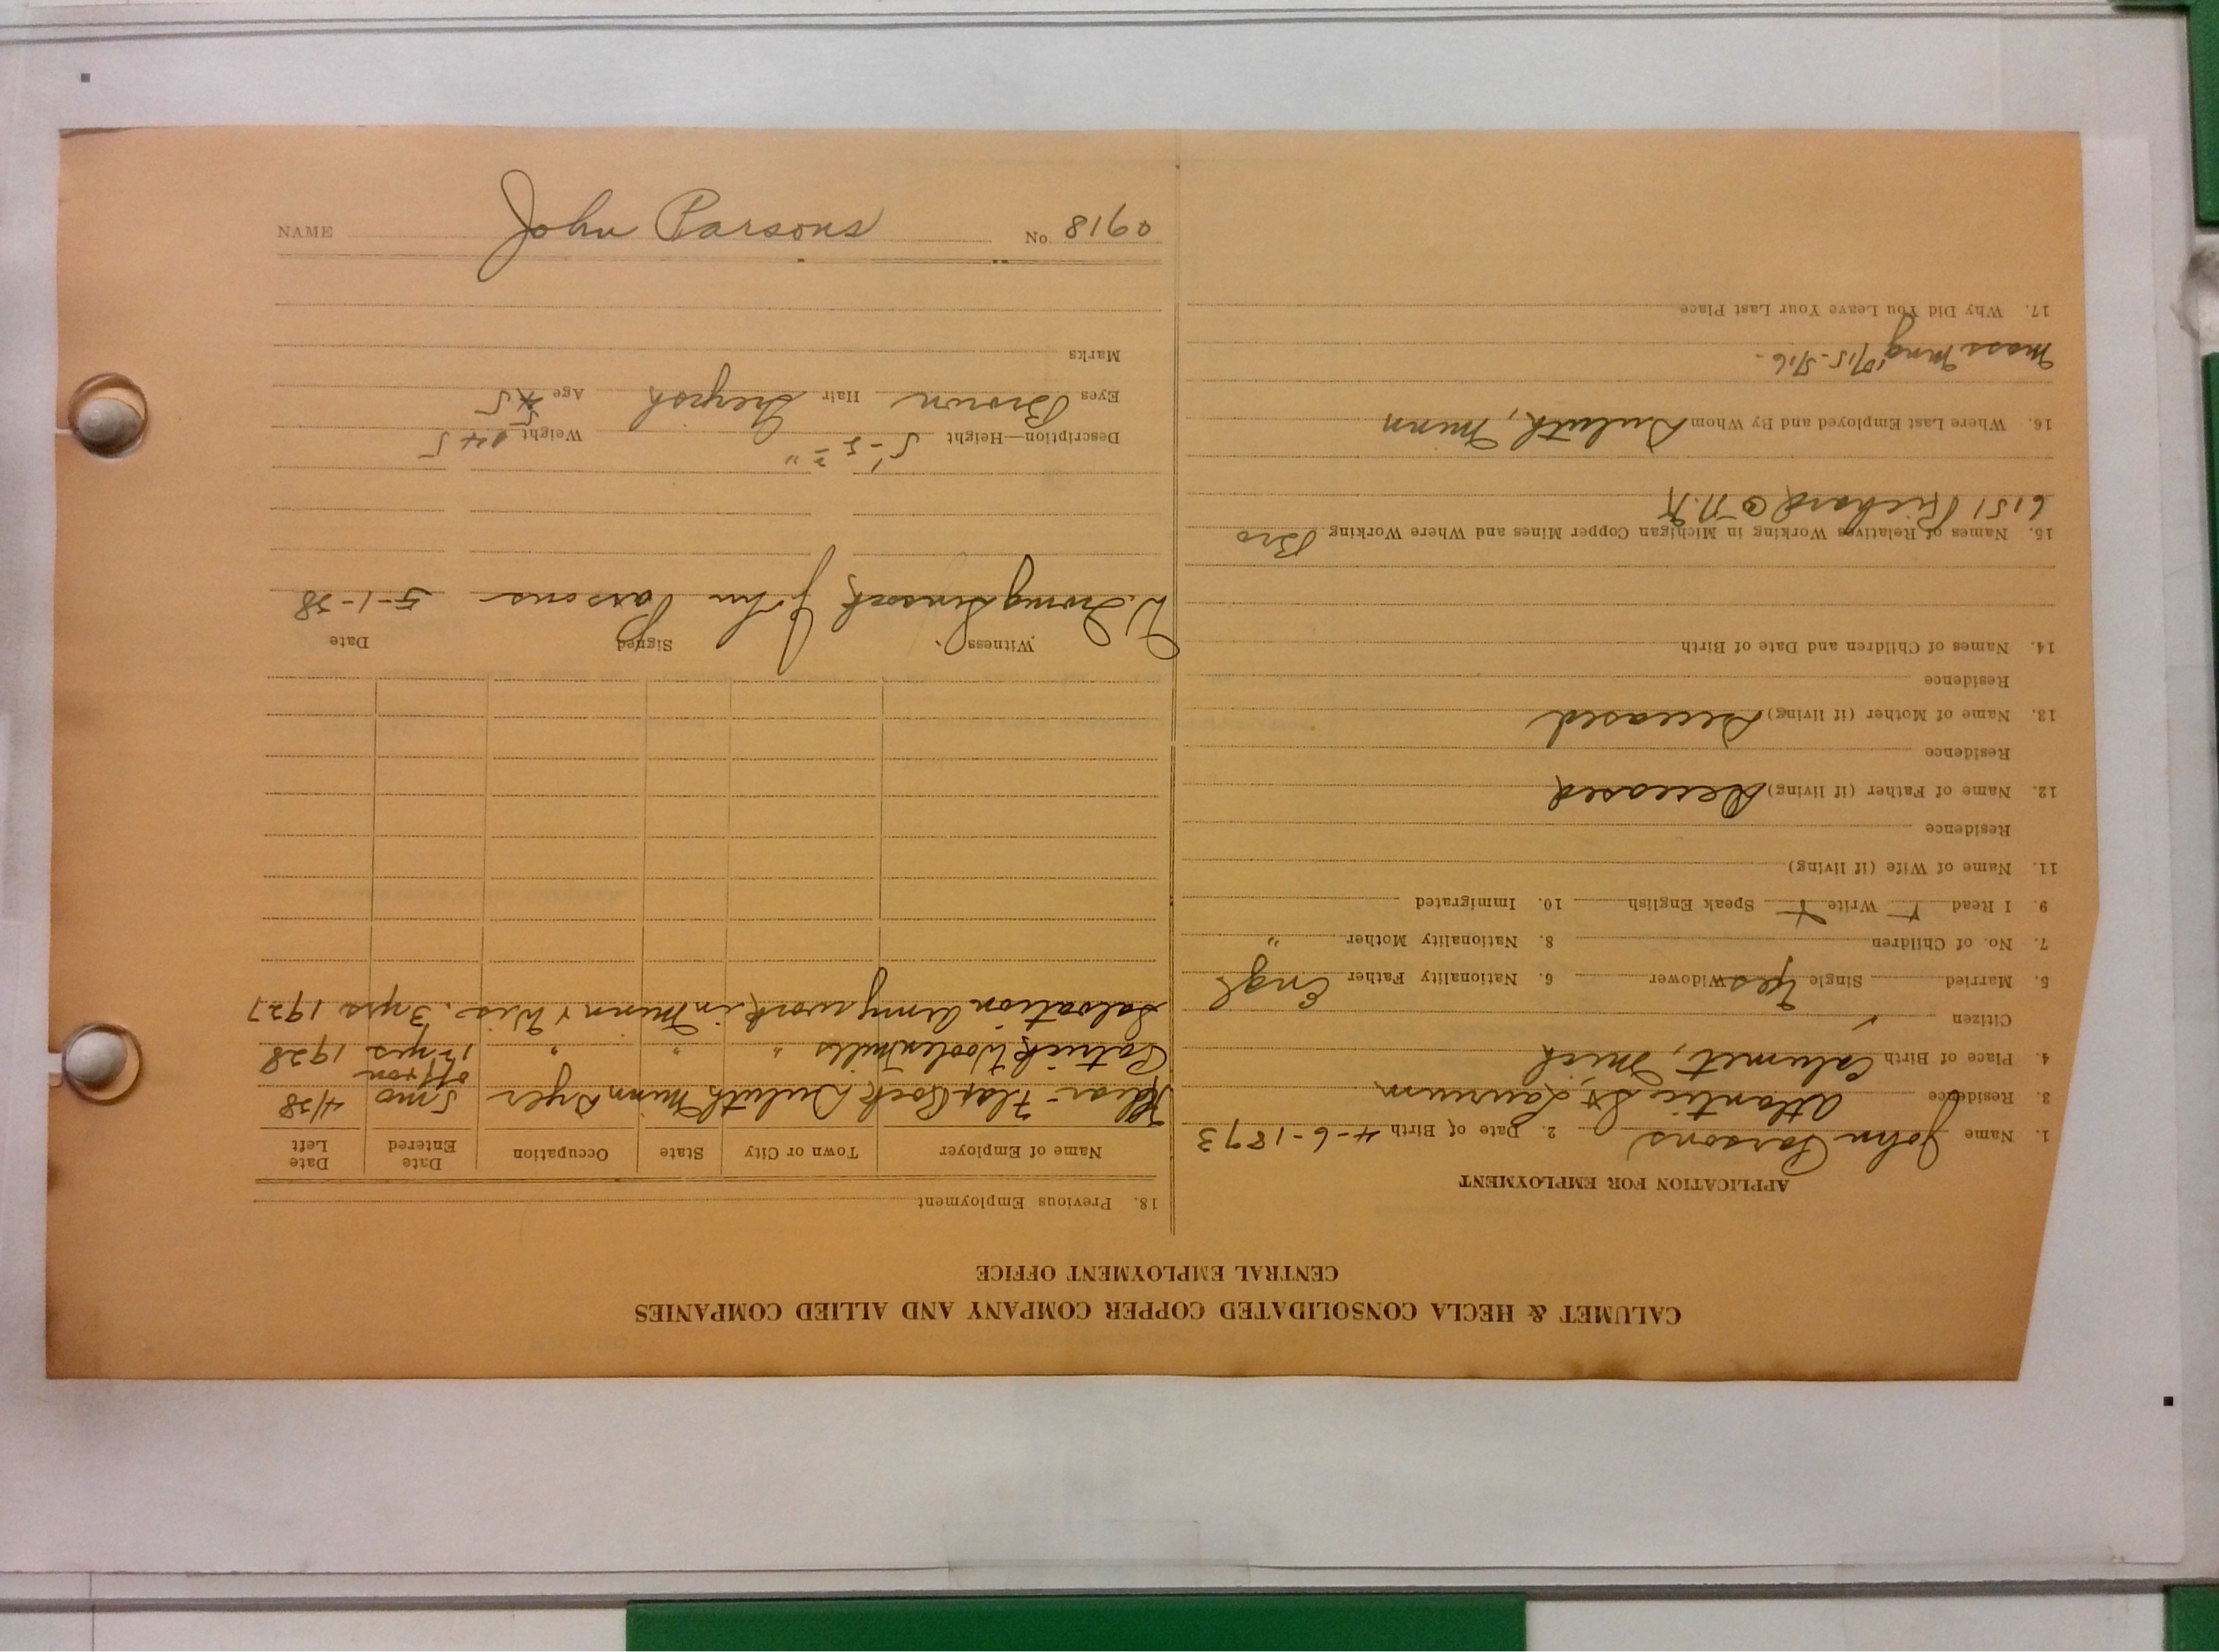 CALUMET & HECLA CONSOLIDATED COPPER COMPANY AND ALLIED COMPANIES
CENTRAL EMPLOYMENT OFFICE
APPLICATION FOR EMPLOYMENT
1. Name John Parsons 2. Date of Birth 4-6-1873
3. Residence Atlantic St, Laurium
4. Place of Birth Calumet, Mich
Citizen ✓
5. Married Single Yes Widower 6. Nationality Father Engl
7. No. of Children 8. Nationality Mother "
9. I Read + Write + Speak English 10. Immigrated
11. Name of Wife (if living)
Residence
12. Name of Father (if living) Deceased
Residence
13. Name of Mother (if living) Deceased
Residence
14. Names of Children and Date of Birth
15. Names of Relatives Working in Michigan Copper Mines and Where Working Bro
6151 Richard @ N.K
16. Where Last Employed and By Whom Duluth, Minn
Mass Mng 10/15-5/16-
17. Why Did You Leave Your Last Place
18. Previous Employment
Name of Employer Town or City State Occupation Date Entered Date Left
Flap Duluth Minn Dyer 5 mo 4/38
off & on
Patrick Woolen Mills " " " 12 yrs 1928
Salvation Army work in Minn & Wis. 3 yrs 1927
Witness Signed Date
John Parsons 5-1-38
Description—Height 5'-5 Weight 145
Eyes Brown Hair Greyish Age
Marks
NAME John Parsons No 8160